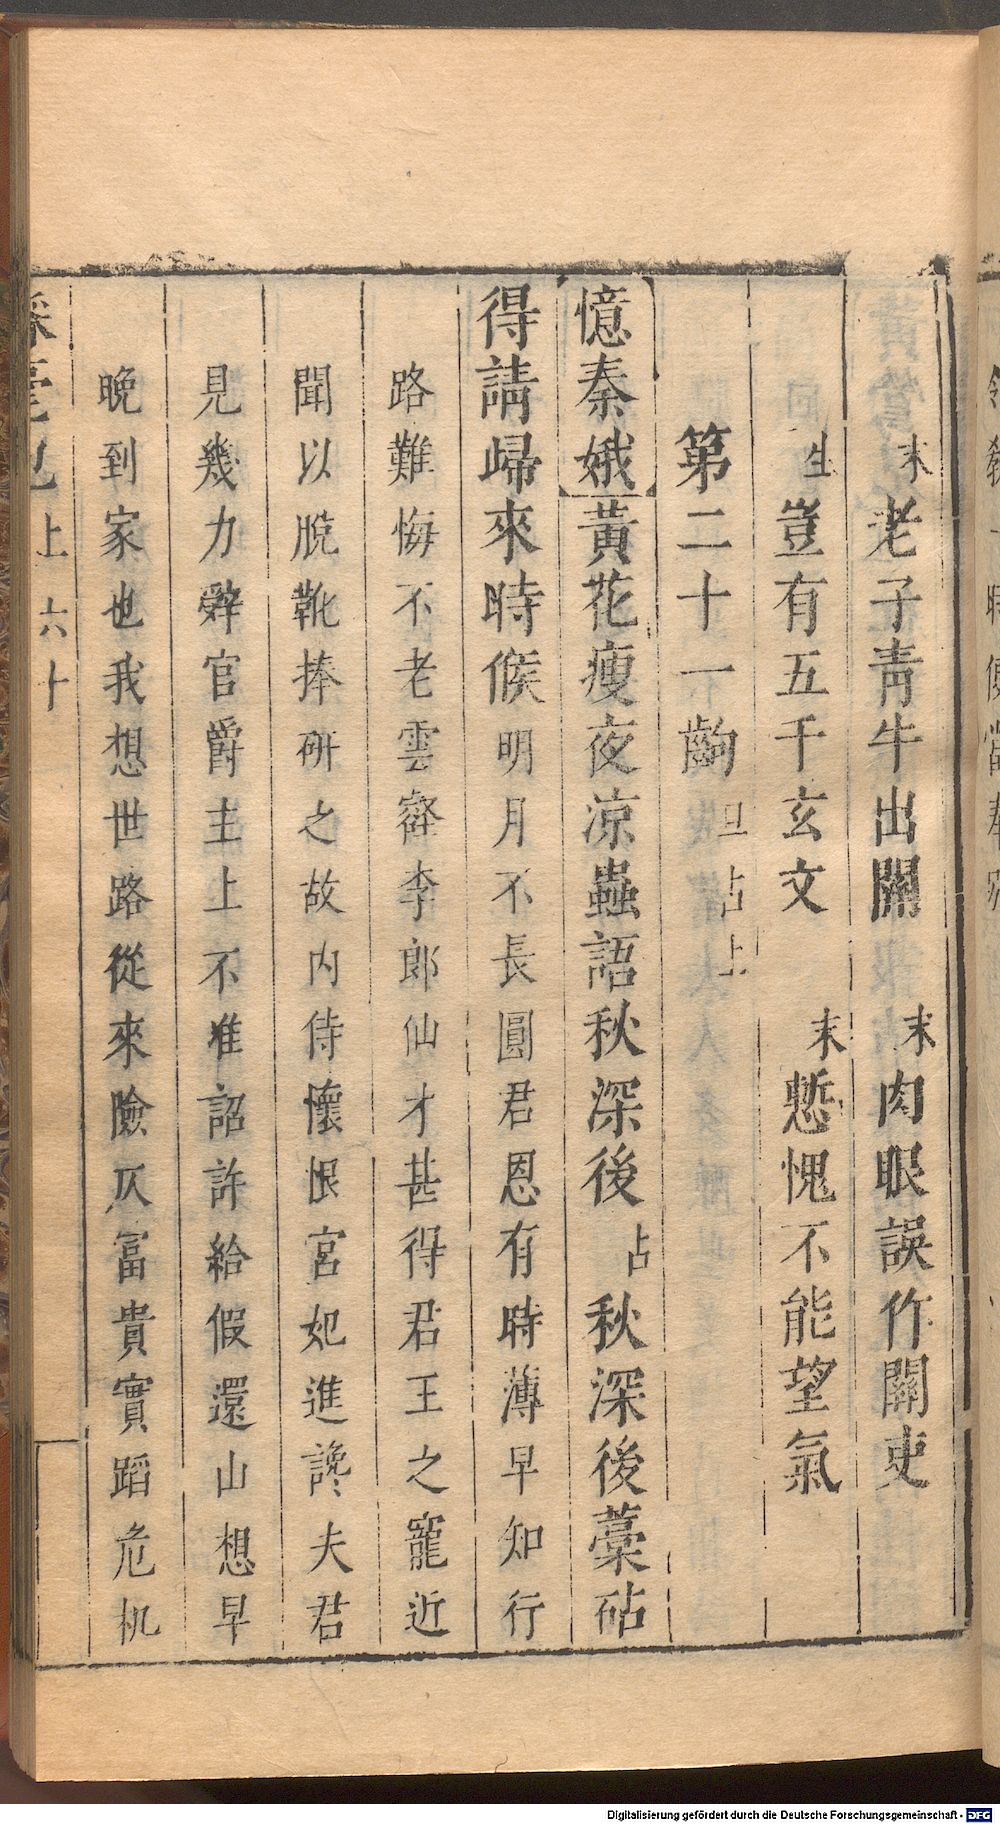 末 老子靑牛出關 末 肉眼誤作關吏
生 豈有五千玄文 末 慙愧不能望氣
第二十一齣 旦占上
憶秦娥 黃花瘦夜凉蟲語秋深後 占 秋深後藁砧
得請歸來時候明月不長圓君恩有時薄早知行
路難悔不老雲壑李郎仙才甚得君王之寵近
聞以脫靴捧硏之故內侍懷恨宮妃進讒夫君
見幾力辤官爵主上不准詔許給假還山想早
晚到家也我想世路從來險仄冨貴實蹈危机
上 六十
Digitalisierung gefördert durch die Deutsche Forschungsgemeinschaft - DFG